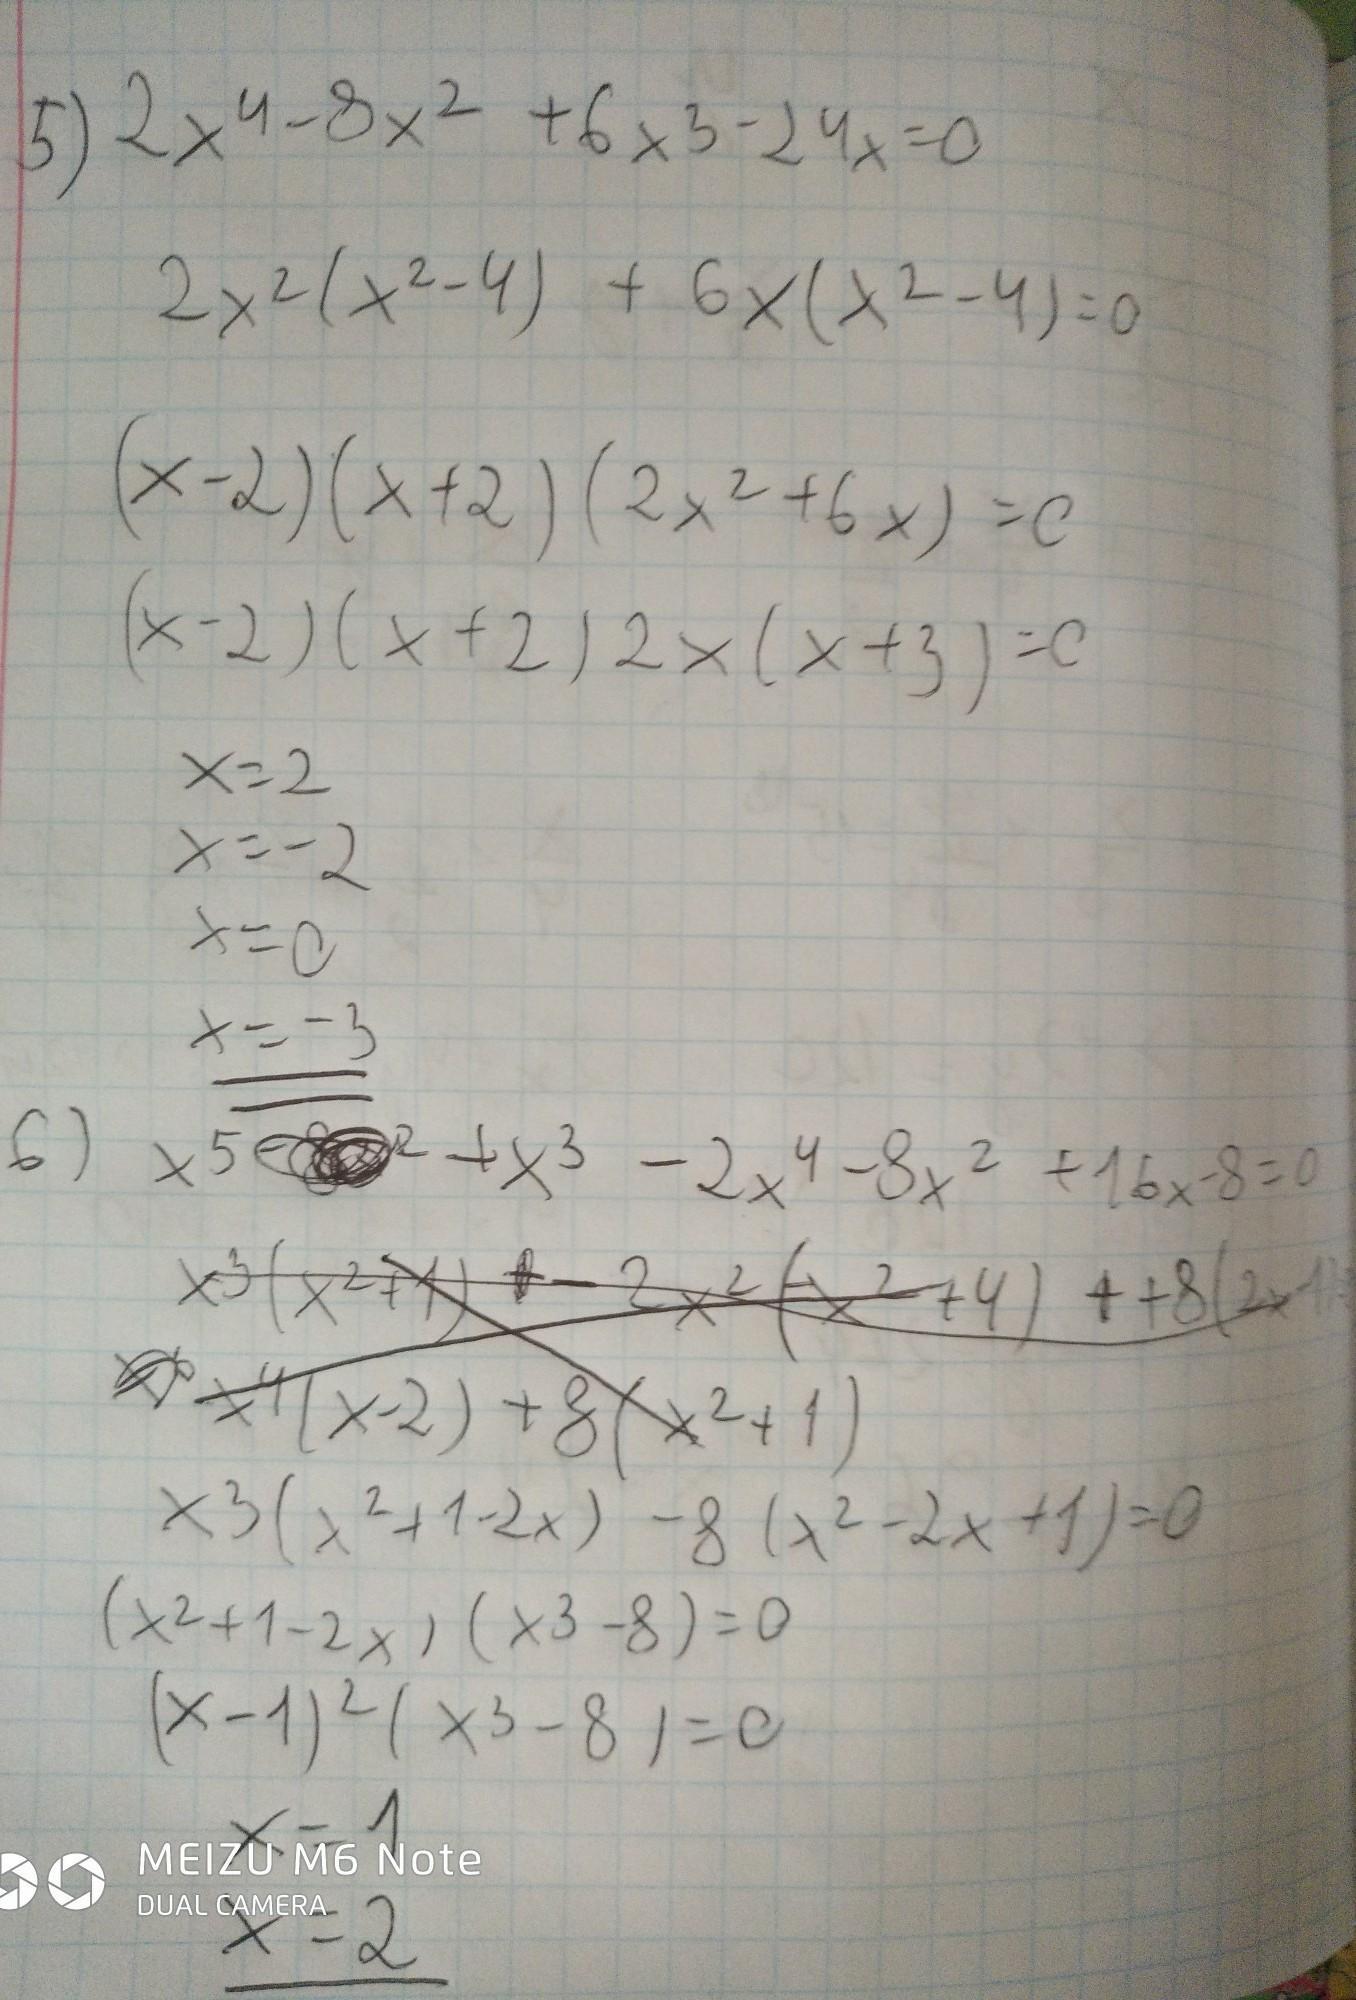 5) 2x⁴-8x² +6x3-24x=0
2x²(x²-4) + 6x(x²-4)=0
(x-2)(x+2)(2x²+6x)=0
(x-2)(x+2)2x(x+3)=0
x=2
x=-2
x=0
x=-3
6) x⁵ ² +x³ -2x⁴-8x² +16x-8=0
x³(x²+1) - 2x²(-x²+4) + +8(2x-1)=
x⁴(x-2)+8(x²+1)
x3(x²+1-2x) -8(x²-2x+1)=0
(x²+1-2x)(x3-8)=0
(x-1)²(x3-8)=0
x=1
MEIZU M6 Note
DUAL CAMERA
x=2